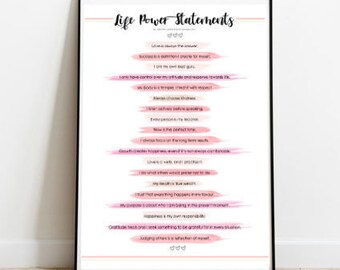 Life Power Statements
Love is always the answer.
Success is definitely possible for myself.
I am my own best guru.
I only have control over my attitude and response towards life.
My body is a temple, I treat it with respect.
Always choose kindness.
I listen actively before speaking.
Now is the perfect time.
I always focus on the long term results.
Growth creates happiness, even if it's not always comfortable.
Love is a verb, and I practice it.
I do what others would prefer not to do.
My health is true wealth.
I trust that everything happens in my favour.
My purpose is about who I am being in the present moment.
Happiness is my own responsibility.
Gratitude heals and I have something to be grateful for in every situation.
Judging others is a reflection of myself.